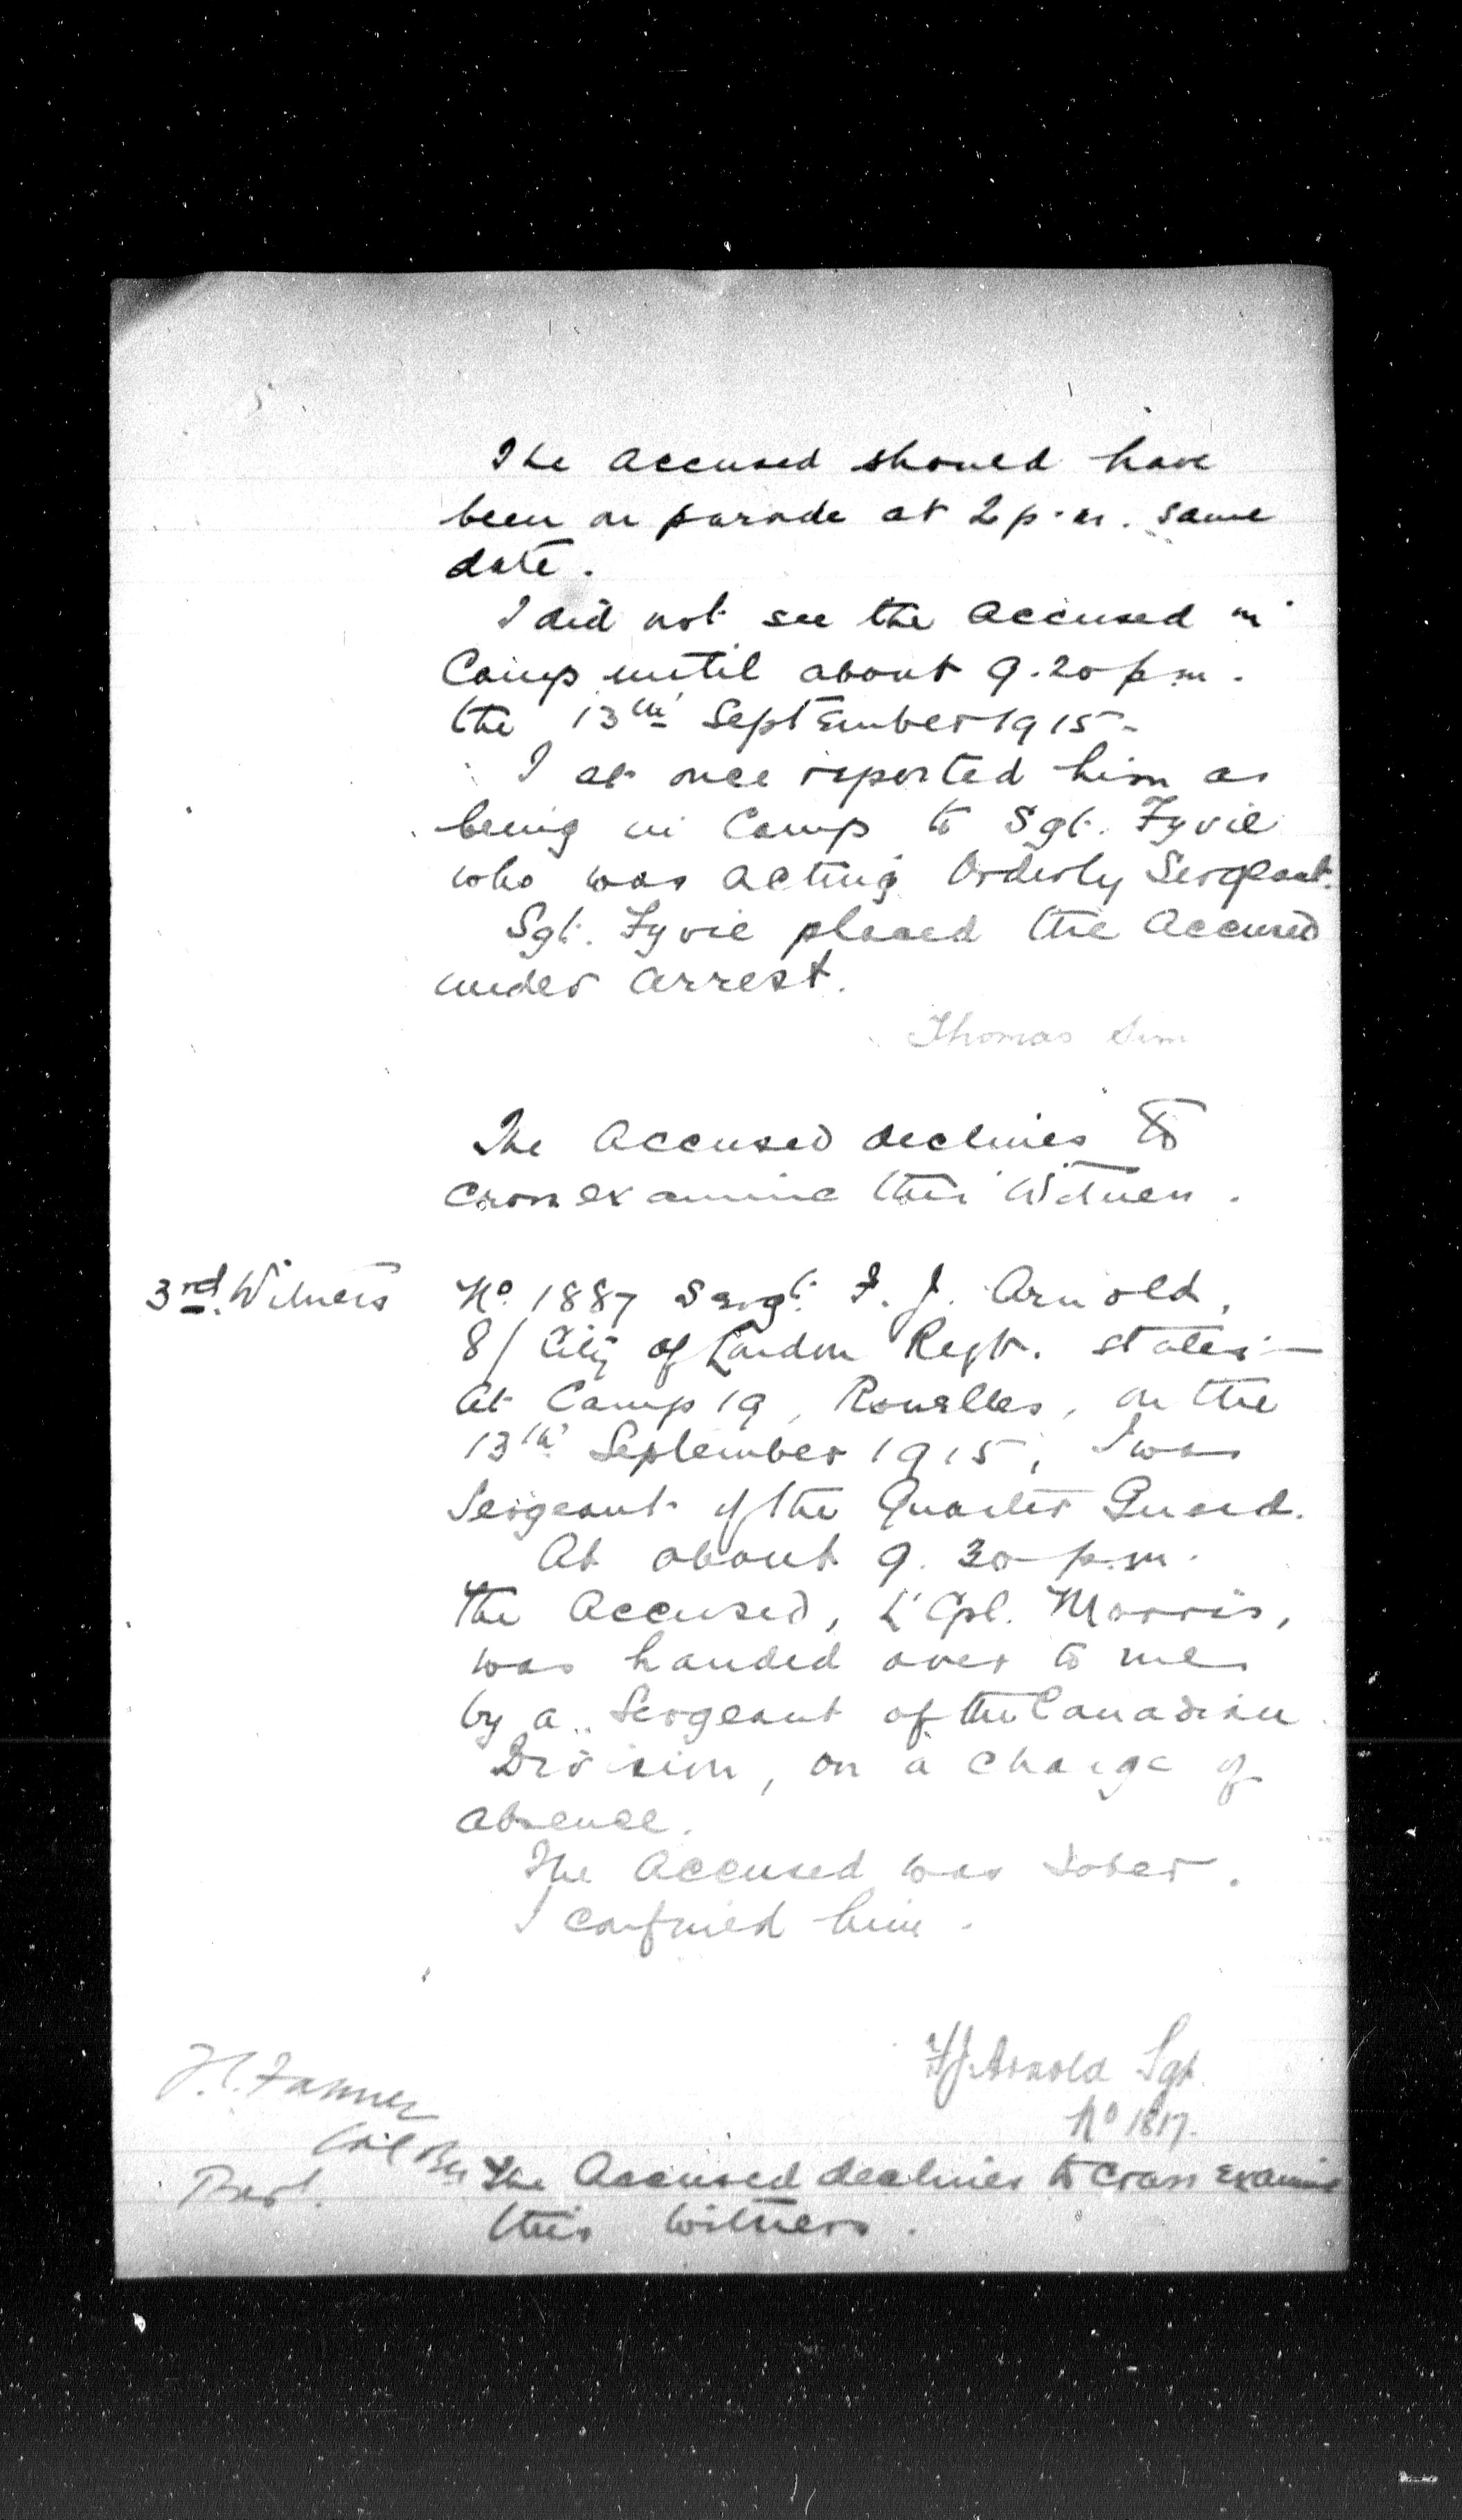 The Accused should have
been on parade at 2 p.m. same
date.
I did not see the Accused in
Camp until about 9.20 p.m.
the 13th September 1915.
I at once reported him as
being in Camp to Sgt. Fyvie
who was acting Orderly Sergeant.
Sgt. Fyvie placed the Accused
under arrest.
Thomas Sim
The Accused declines to
cross examine this Witness.
3rd. Witness
No. 1887 Sergt. F. J. Arnold,
8/ City of London Regt. states:—
At Camp 19, Rouelles, on the
13th September 1915, I was
Sergeant of the Quarter Guard.
At about 9.30 p.m.
the Accused, L'Cpl. Morris,
was handed over to me
by a Sergeant of the Canadian
Division, on a charge of
absence.
The Accused was sober.
I confined him.
F J Arnold Sgt.
No 1817.
The Accused declines to cross examine
this witness.